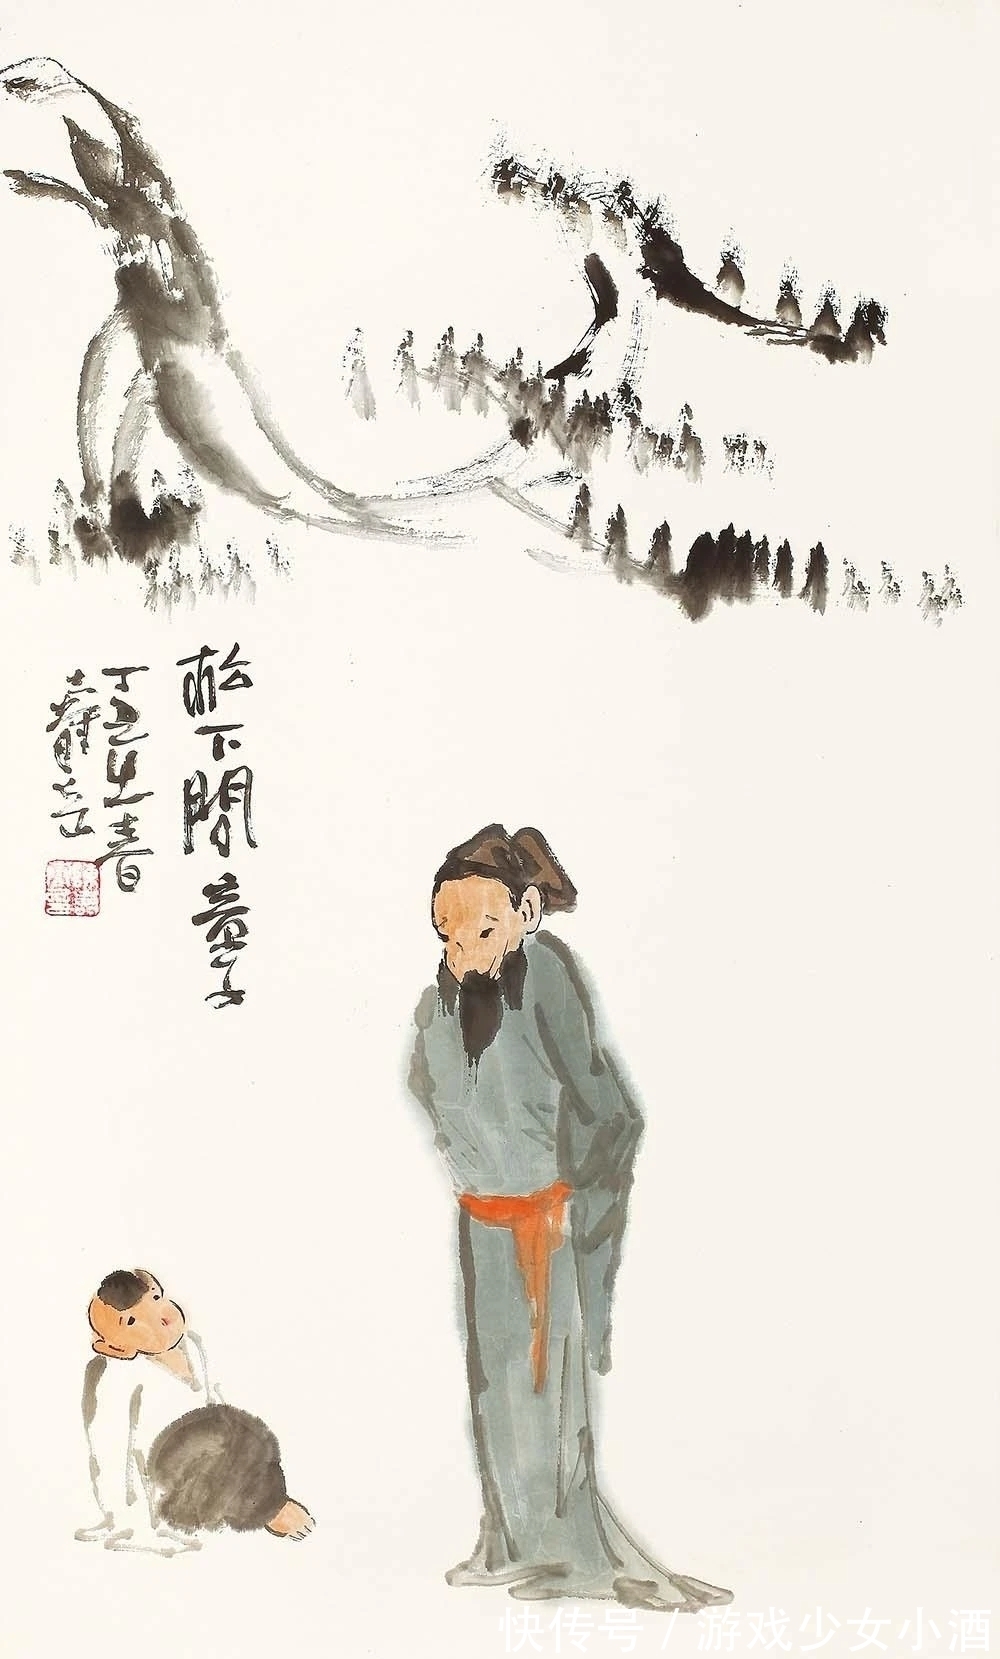 松下問童子
丁丑春
壽岳
快传号 / 游戏少女小酒